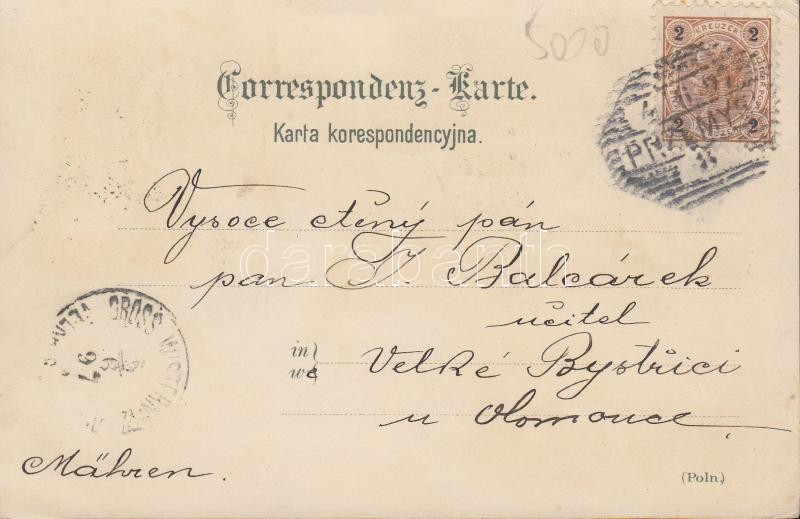 5000
2 KREUZER 2
2 2
Correspondenz-Karte.
Karta korespondencyjna.
PRZEMYŚL
Vysoce ctěný pán
pan F. Balcárek
učitel
in
we Velké Bystřici
u Olomouce
Mähren.
GROSS WISTERNITZ
97
(Poln.)
darabanth